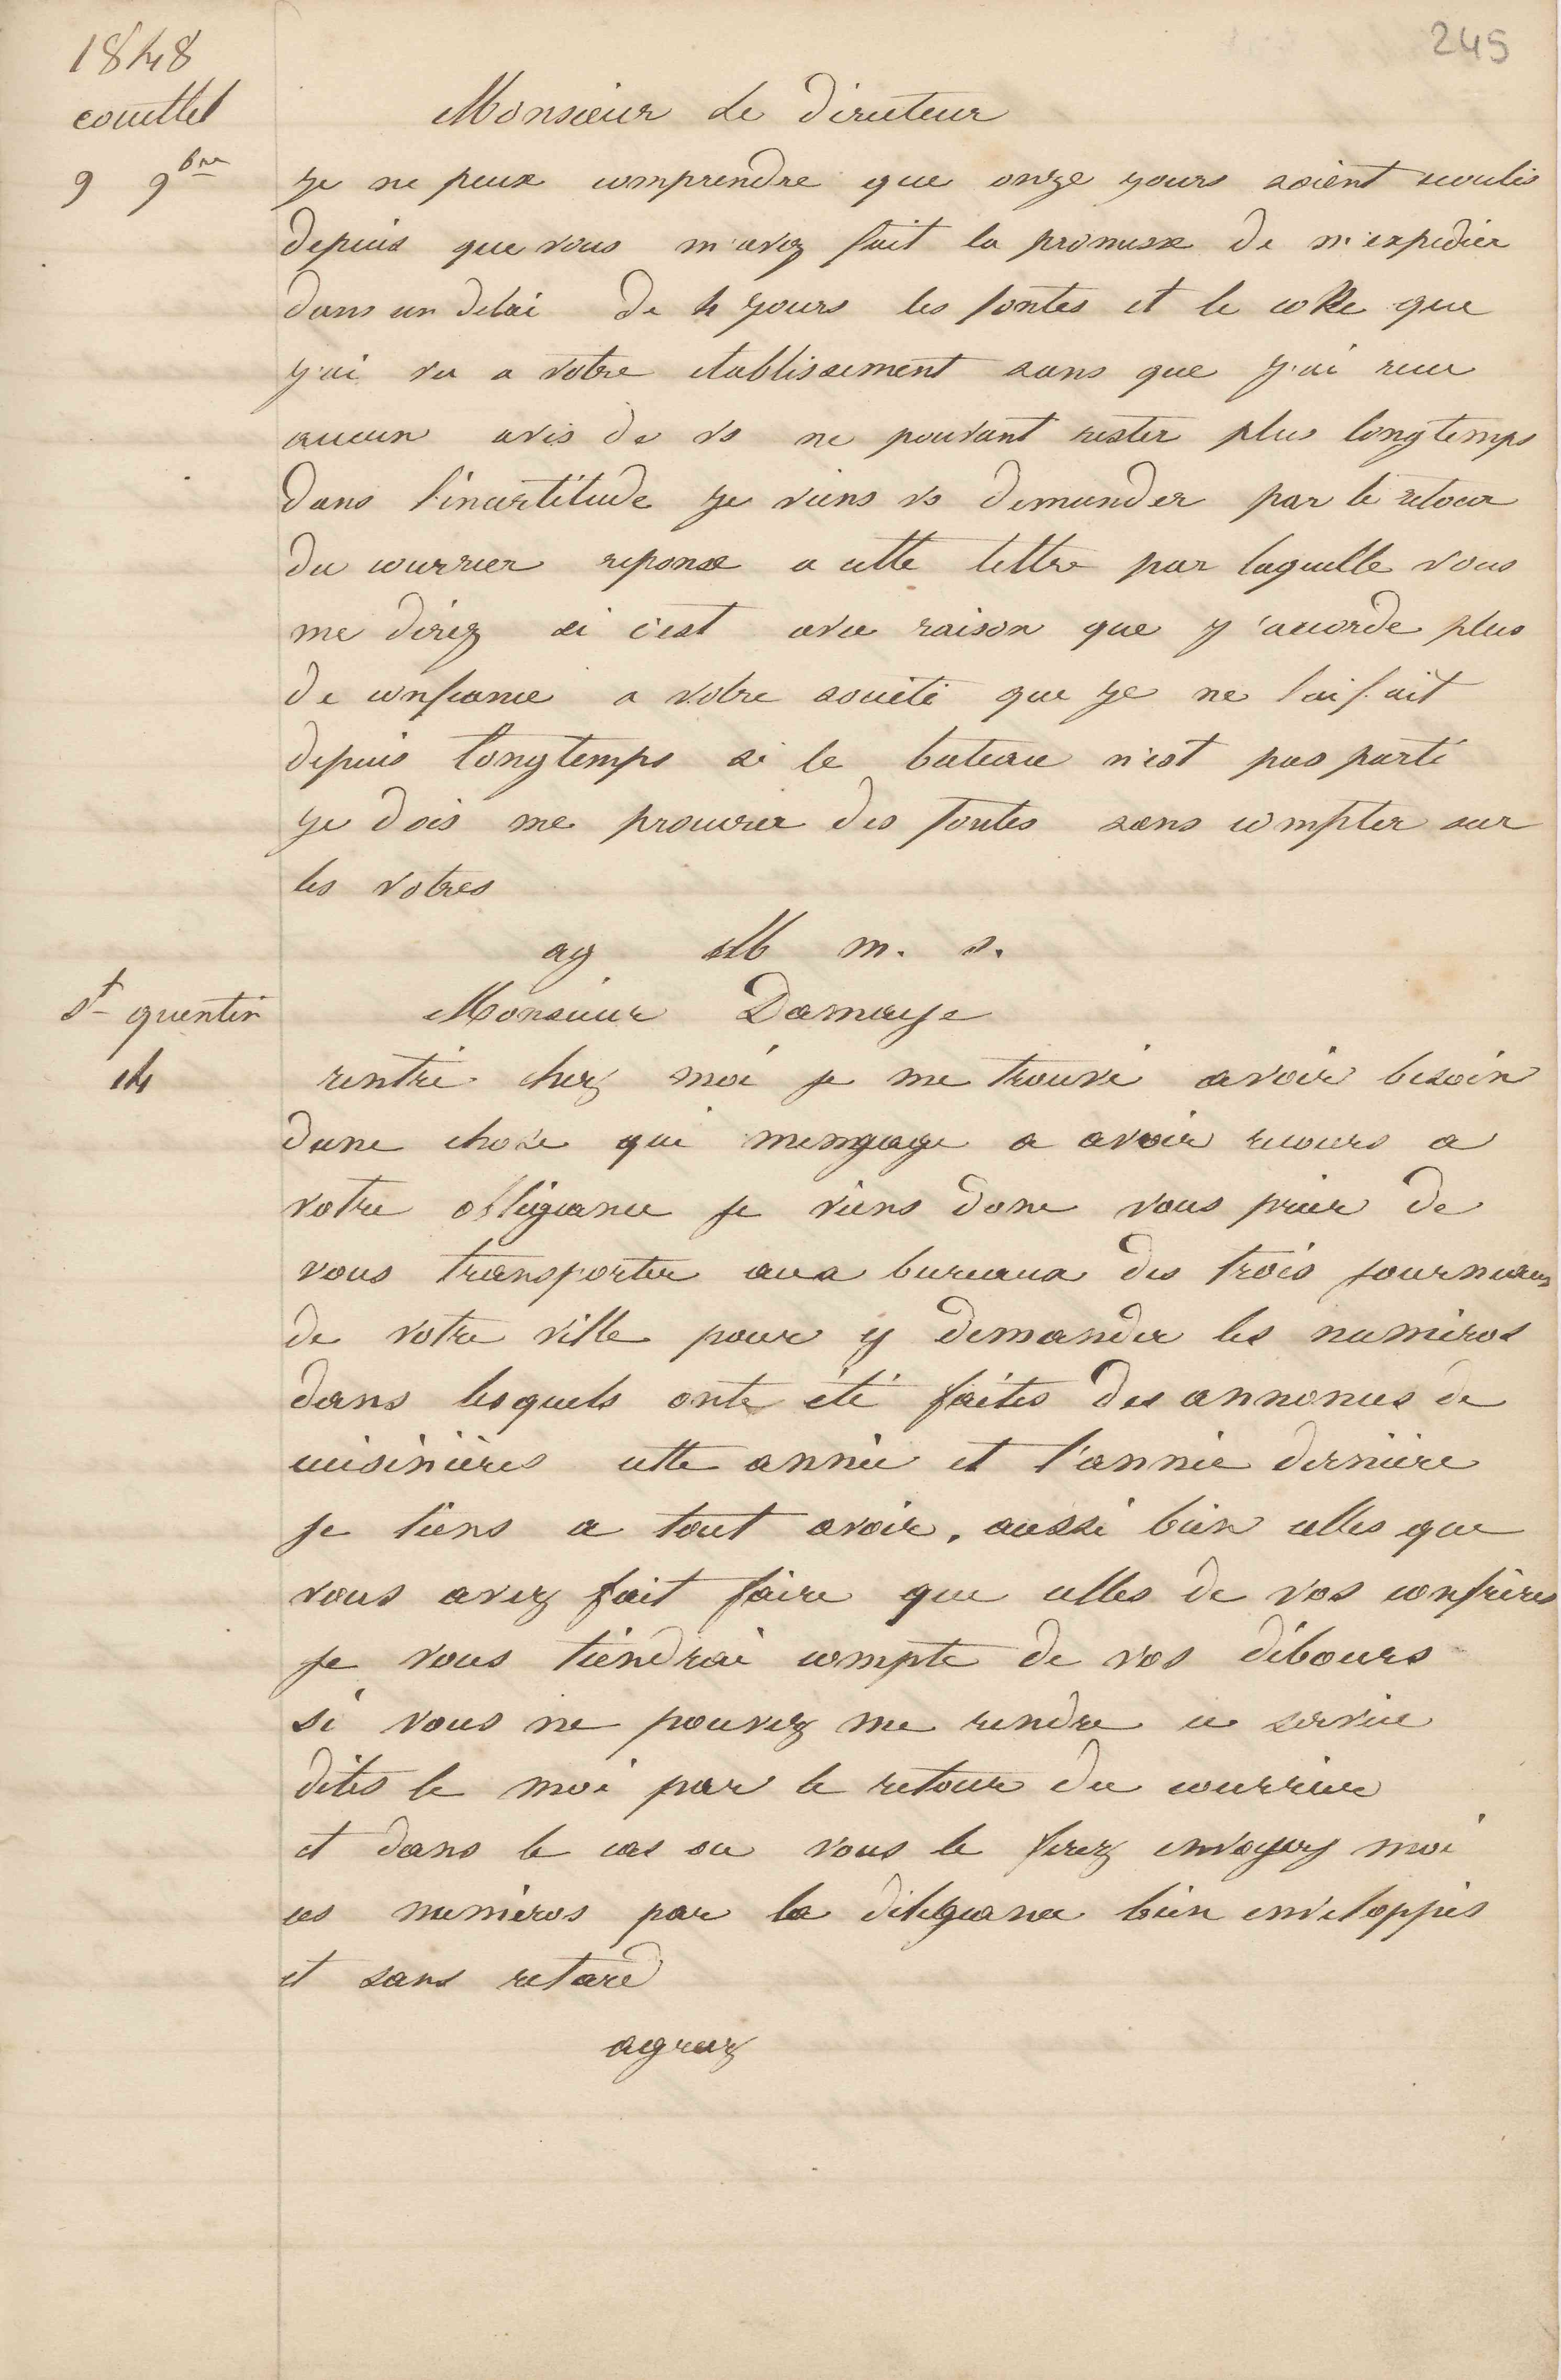 245
1848
couillet
9 9bre
Monsieur Le directeur
je ne peux comprendre que onze jours soient ecoulés
depuis que vous m'avez fait la promesse de m'expedier
dans un delai de 4 jours les fontes et le coke que
j'ai vu a votre etablissement sans que j'ai recu
aucun avis de vs ne pouvant rester plus longtemps
dans l'incertitude je viens vs demander par le retour
du courrier reponse a cette lettre par laquelle vous
me direz si c'est avec raison que j'accorde plus
de confiance a votre société que je ne l'ai fait
depuis longtemps si le bateau n'est pas parti
je dois me procurer des fontes sans compter sur
les votres
ag Mr m. s.
st quentin
14
Monsieur Damaye
rentré chez moi je me trouve avoir besoin
dune chose qui mengage a avoir recours a
votre obligeance je viens donc vous prier de
vous transporter aux bureaux des trois journeaux
de votre ville pour y demander les numéros
dans lesquels ont été faites des annonces de
cuisinières cette année et l'année dernière
je tiens a tout avoir, aussi bien celles que
vous avez fait faire que celles de vos confrères
je vous tiendrai compte de vos débours
si vous ne pouvez me rendre ce service
dites le moi par le retour du courrier
et dans le cas ou vous le ferez envoyez moi
ces numéros par la diligeance bien enveloppés
et sans retard
agreez